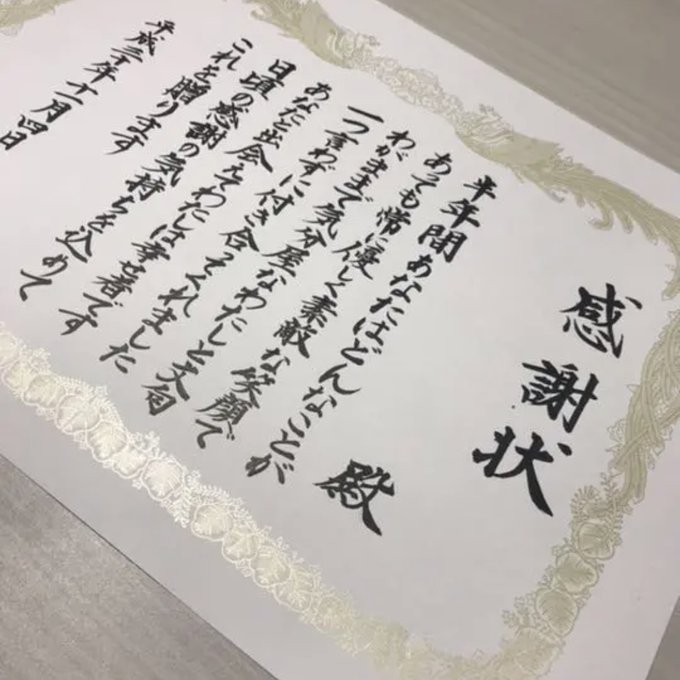 感謝状
殿
半年間あなたはどんなことが
あっても常に優しく素敵な笑顔で
わがままで気分屋なわたしと文句
一つ言わずに付き合ってくれました
あなたと出会えてわたしは幸せ者です
日頃の感謝の気持ちを込めて
これを贈ります
平成三十年十一月四日